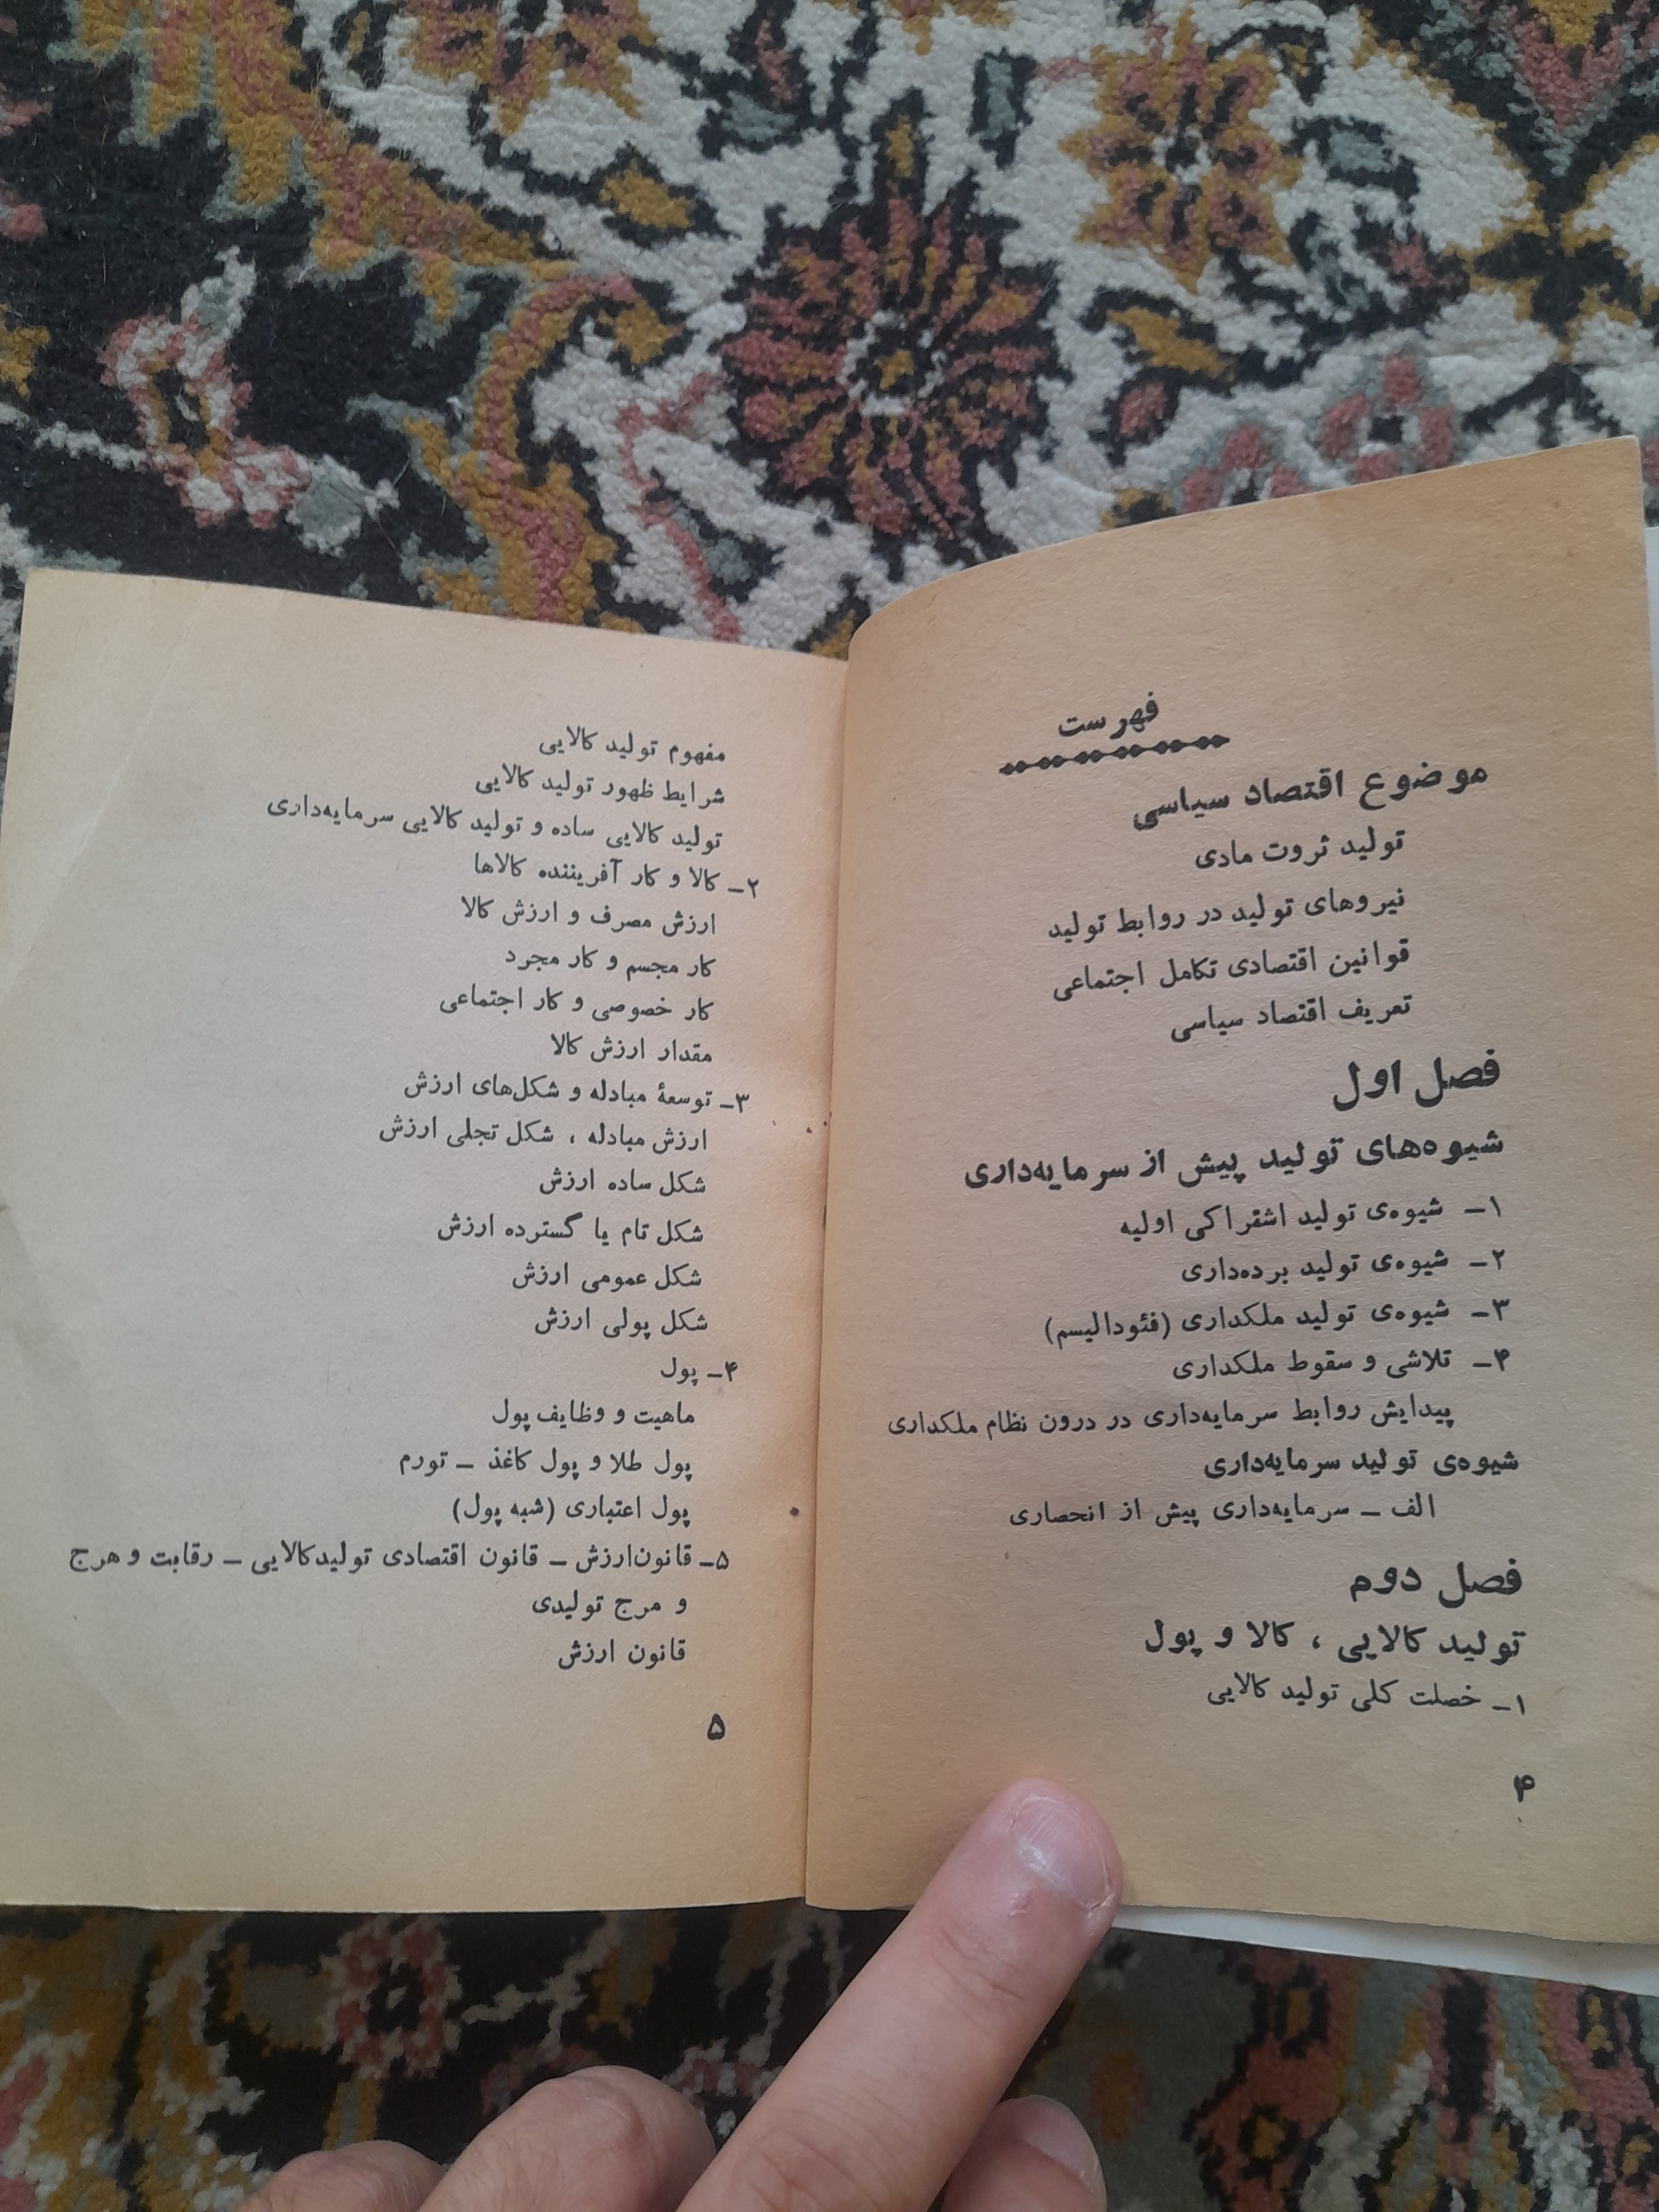 فهرست
موضوع اقتصاد سیاسی
تولید ثروت مادی
نیروهای تولید در روابط تولید
قوانین اقتصادی تکامل اجتماعی
تعریف اقتصاد سیاسی
فصل اول
شیوه‌های تولید پیش از سرمایه‌داری
۱- شیوه‌ی تولید اشتراکی اولیه
۲- شیوه‌ی تولید برده‌داری
۳- شیوه‌ی تولید ملکداری (فئودالیسم)
۴- تلاشی و سقوط ملکداری
پیدایش روابط سرمایه‌داری در درون نظام ملکداری
شیوه‌ی تولید سرمایه‌داری
الف - سرمایه‌داری پیش از انحصاری
فصل دوم
تولید کالایی ، کالا و پول
۱- خصلت کلی تولید کالایی
۴
مفهوم تولید کالایی
شرایط ظهور تولید کالایی
تولید کالایی ساده و تولید کالایی سرمایه‌داری
۲- کالا و کار آفریننده کالاها
ارزش مصرف و ارزش کالا
کار مجسم و کار مجرد
کار خصوصی و کار اجتماعی
مقدار ارزش کالا
۳- توسعهٔ مبادله و شکل‌های ارزش
ارزش مبادله ، شکل تجلی ارزش
شکل ساده ارزش
شکل تام یا گسترده ارزش
شکل عمومی ارزش
شکل پولی ارزش
۴- پول
ماهیت و وظایف پول
پول طلا و پول کاغذ - تورم
پول اعتباری (شبه پول)
۵- قانون‌ارزش - قانون اقتصادی تولیدکالایی - رقابت و هرج
و مرج تولیدی
قانون ارزش
۵